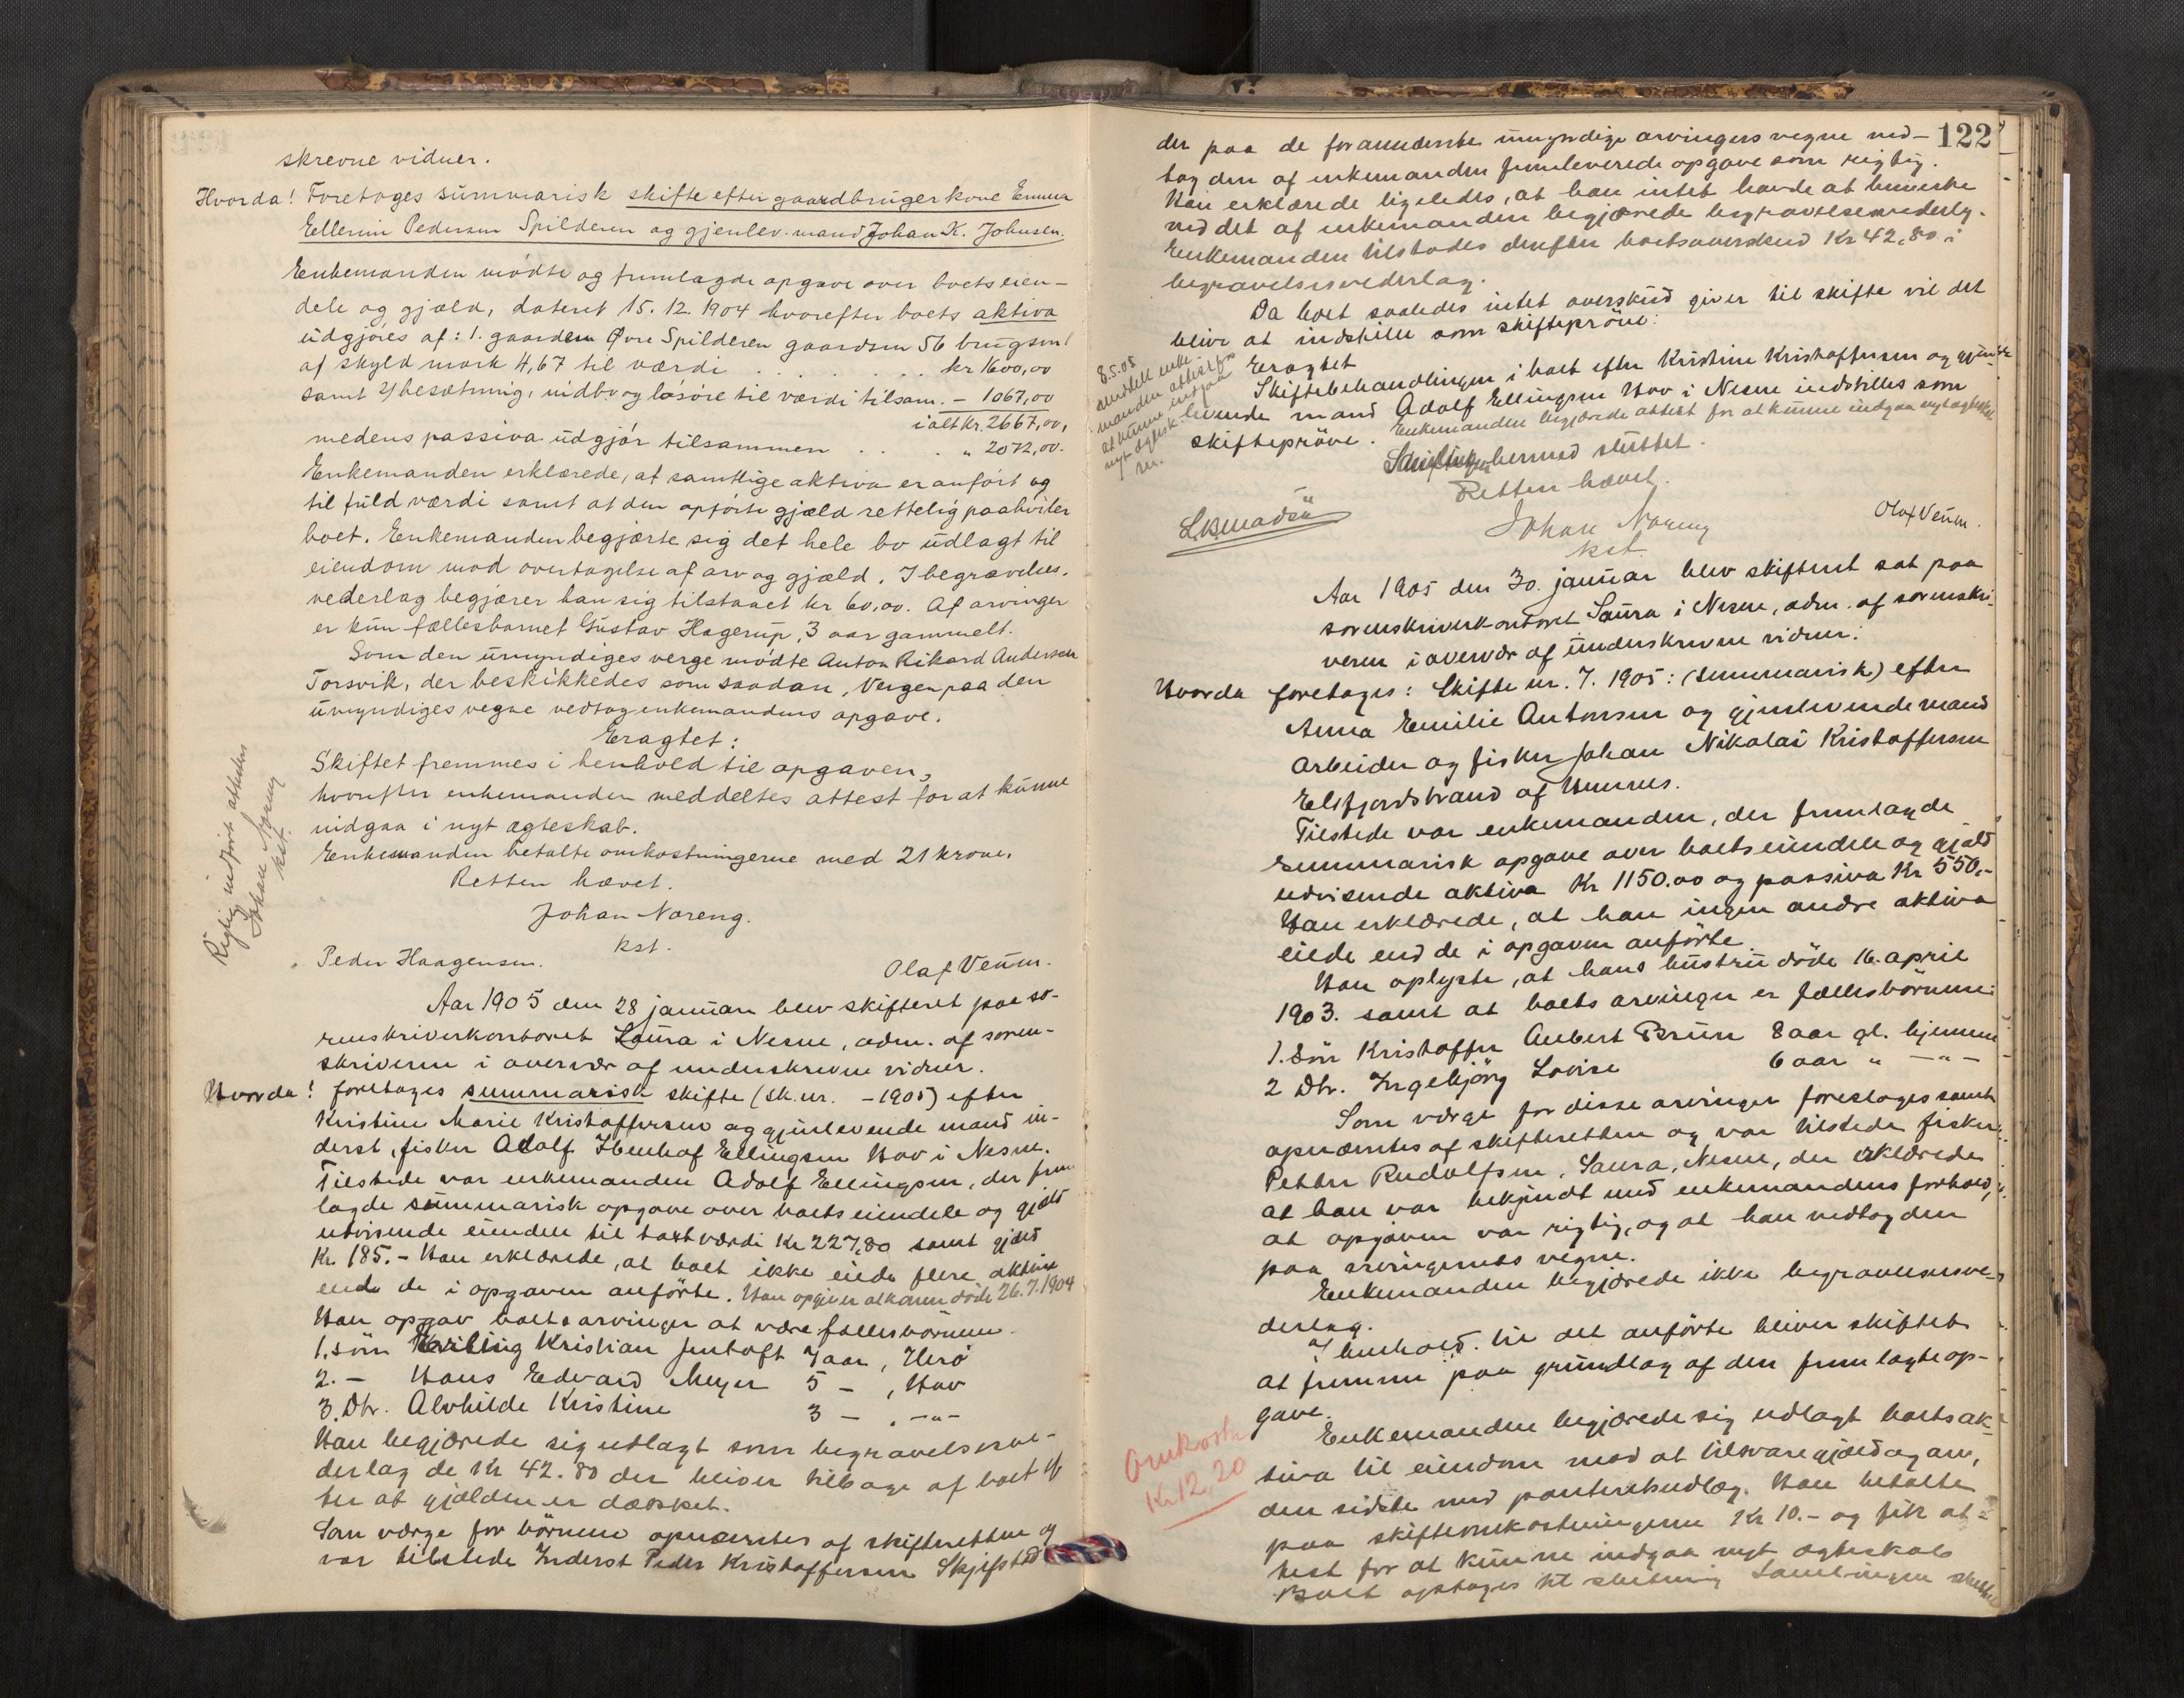 skrevne vidner.
Hvorda! Foretoges summarisk skifte efter gaardbruger kone Emma
Ellerine Pedersen Spilderen og gjenlev. mand Johan K. Johnsen.
Enkemanden mødte og fremlagde opgave over boets eien-
dele og gjæld, dateret 15.12.1904 hvorefter boets aktiva
udgjøres af: 1. gaarden Øvre Spilderen gaardsnr 56 brugsnr 1
af skyld mark 4,67 til værdi . . . . . . kr 1600,00
samt besætning, indbo og løsøre til værdi tilsam. - 1067,00
ialt kr. 2667,00,
medens passiva udgjør tilsammen . . . " 2072,00.
Enkemanden erklærede, at samtlige aktiva er anført og
til fuld værdi samt at den opførte gjæld rettelig paahviler
boet. Enkemanden begjærte sig det hele bo udlagt til
eiendom mod overtagelse af arv og gjæld. I begravelses-
vederlag begjærer han sig tilstaaet kr 60,00. Af arvinger
er kun fællesbarnet Gustav Hagerup, 3 aar gammelt.
Som den umyndiges verge mødte Anton Rikard Andersen
Torsvik, der beskikkedes som saadan, Vergen paa den
umyndiges vegne vedtog enkemandens opgave.
Eragtet:
Skiftet fremmes i henhold til opgaven,
hvorefter enkemanden meddeltes attest for at kunne
indgaa i nyt ægteskab.
Enkemanden betalte omkostningerne med 21 kroner.
Retten hævet.
Johan Noreng.
kst.
Peder Haagensen.
Olaf Venm.
Rigtig indført attesteres
Johan Noreng
kst.
Aar 1905 den 28 januar blev skifteret paa so-
renskriverkontoret Saura i Nesne, adm. af soren-
skriveren i overvær af underskrevne vidner.
Hvorda! foretoges summarisk skifte (sk. nr. - 1905) efter
Kristine Marie Kristoffersen og gjenlevende mand in-
derst, fisker Adolf Ellingsen Hov i Nesne.
Tilstede var enkemanden Adolf Ellingsen, der frem
lagde summarisk opgave over boets eiendele og gjæld
udvisende eiendele til taxtværdi Kr 227,80 samt gjæld
Kr. 185.- Han erklærede, at boet ikke eiede flere aktiva
ende de i opgaven anførte. Han opgiver at konen døde 26.7.1904
Han opgav boets arvinger at være fællesbørnene.
1. søn Kristian Jentoft 7 aar, Herø
2. - Hans Edvard Meyer 5 - , Hov
3. Dtr. Alvhilde Kristine 3 - . -"-
Han begjærede sig udlagt som begravelsesve-
derlag de Kr 42.80 der bliver tilbage af boet ef
ter at gjælden er dækket.
Som værge for børnene opnævntes af skifteretten og
var tilstede Inderst Peder Kristoffersen Skjefsted
122
der paa de foranævnte umyndige arvingers vegne ved-
tog den af enkemanden fremleverede opgave som rigtig.
Han erklærede ligeledes, at han intet havde at bemerke
ved det af enkemanden begjærede begravelsesvederlg.
Enkemanden tilstodes derefter boets overskud Kr 42,80 i
begravelsesvederlag.
Da boet saaledes intet overskud giver til skifte vil det
blive at indstille som skifteprøve:
Eragtet
8.5.05
meddelt enke-
manden attest for
at kunne indgaa
nyt ægtesk.
Skiftebehandlingen i boet efter Kristine Kristoffersen og gjen-
levende mand Adolf Ellingsen Hov i Nesne indstilles som
skifteprøve. Enkemanden begjærede attest for at kunne indgaa nyt ægteskab
hermed sluttet.
Retten hævet.
Johan Noreng
kst
Olaf Venm.
Aar 1905 den 30. januar blev skifteret sat paa
sorenskriverkontoret Saura i Nesne, adm. af sorenskri-
veren i overvær af underskrevne vidner:
Hvorda foretoges: Skifte nr. 7. 1905: (summarisk) efter
Anna Emilie Antonsen og gjenlevende mand
arbeider og fisker Johan Nikolai Kristoffersen
Elsfjordstrand af Hemnes.
Tilstede var enkemanden, der fremlagde
summarisk opgave over boets eiendele og gjæld
udvisende aktiva Kr 1150.00 og passiva Kr 550.-
Han erklærede, at han ingen andre aktiva
eiede end de i opgaven anførte.
Han oplyste, at hans hustru døde 16. april
1903. samt at boets arvinger er fællesbørnene:
1. Søn Kristoffer Aubert Brun 8 aar gl. hjemme
2 Dtr. Ingebjørg Lovise 6 aar " -"-
Som værge for disse arvinger foresloges samt
opnævntes af skifteretten og var tilstede fisker
Petter Rudolfsen, Saura, Nesne, der erklærede
at han var bekjendt med enkemandens forhold,
at opgaven var rigtig, og at han vedtog den
paa arvingernes vegne.
Enkemanden begjærede ikke begravelsesve-
derlag.
I henhold til det anførte bliver skiftet
at fremme paa grundlag af den fremlagte op-
gave.
Enkemanden begjærede sig udlagt boets ak-
tiva til eiendom mod at tilsvare gjæld og arv,
den sidste mod panteudlæg. Han betalte
paa skifteomkostningerne Kr 10.- og fik at-
test for at kunne indgaa nyt ægteskab
Boet optages til slutning Samlingen
Omkostn
Kr. 12,20